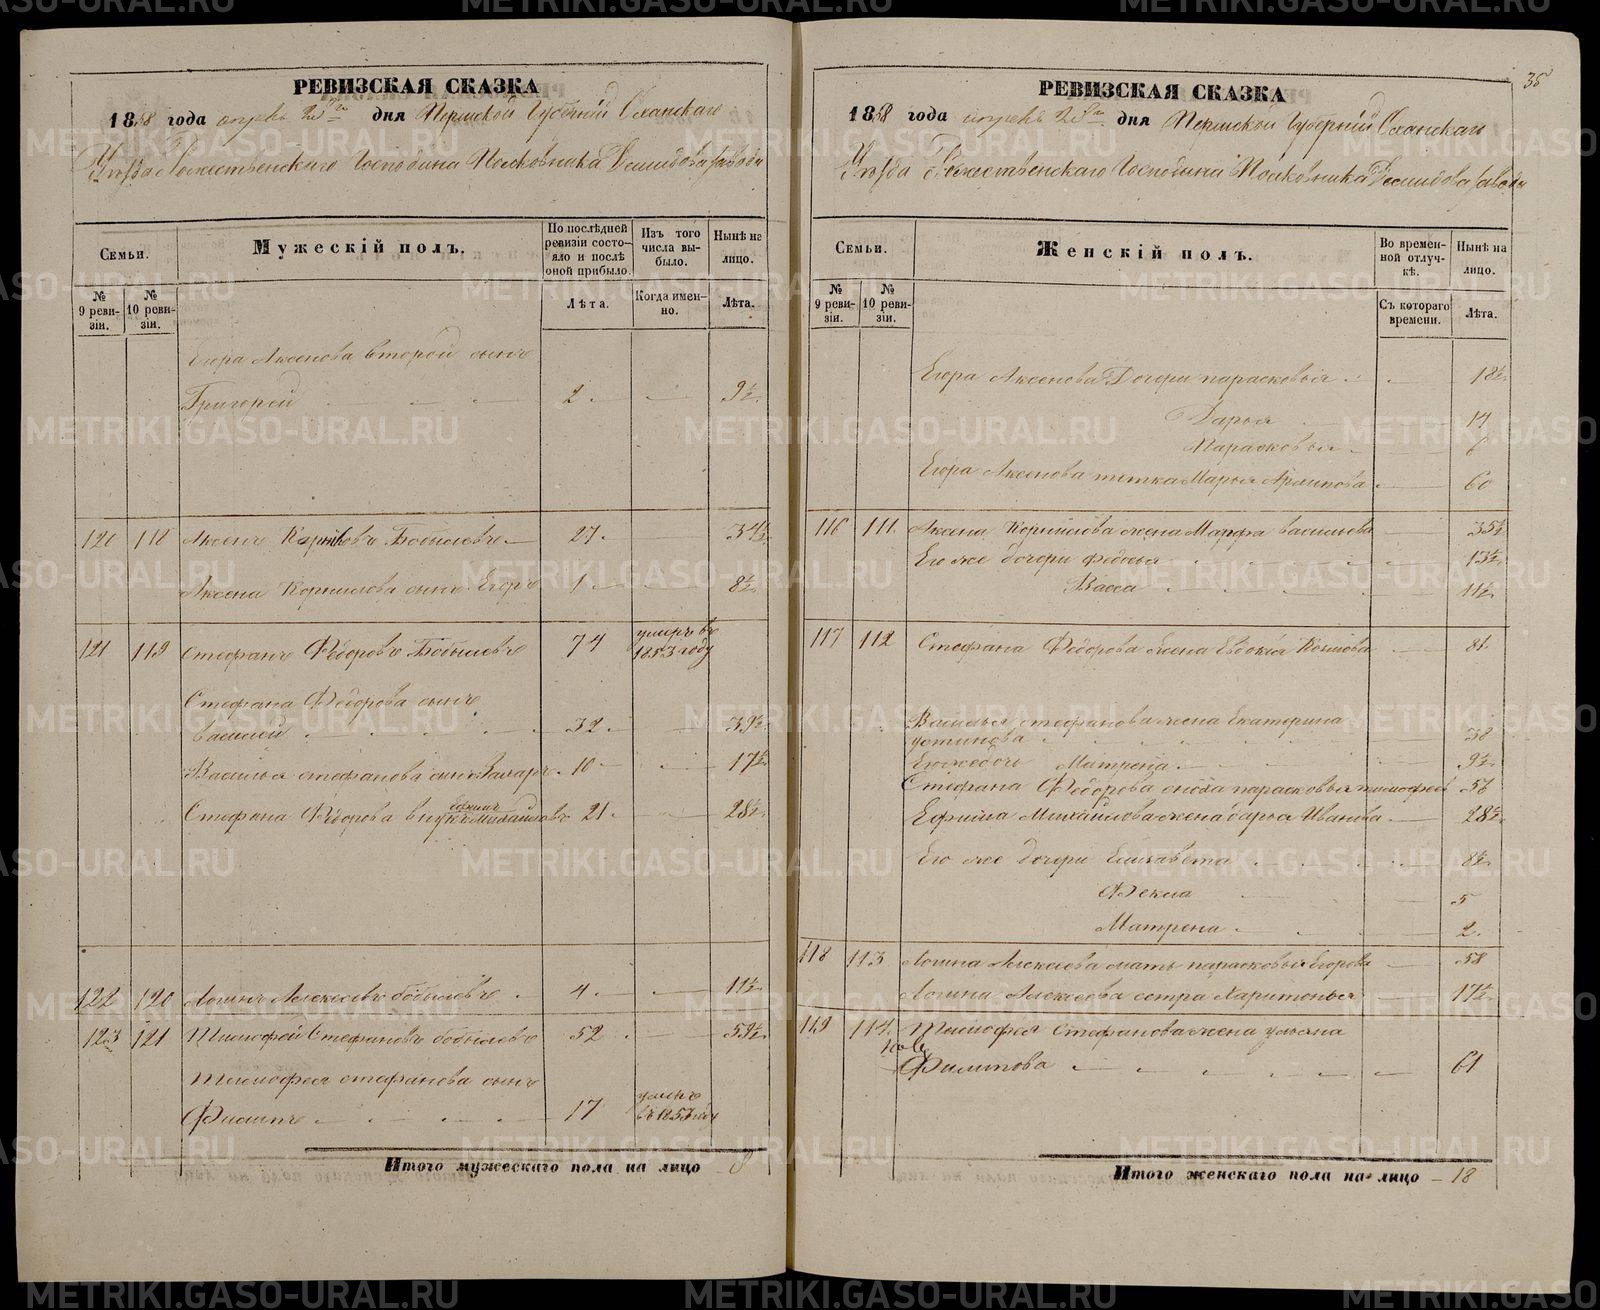 РЕВИЗСКАЯ СКАЗКА
1858 года апреля 25го дня Пермской Губернiи Оханскаго
Уѣзда Рожественскаго Господина Полковника Демидова завода
Семьи.
Мужескiй полъ.
По послѣдней ревизiи состояло и послѣ оной прибыло.
Изъ того числа выбыло.
Нынѣ на лицо.
№ 9 ревизiи.
№ 10 ревизiи.
Лѣта.
Когда именно.
Лѣта.
Егора Аксенова второй сынъ
Григорей 2 9½
120 118 Аксенъ Корниловъ Бобылевъ 27 34½
Аксена Корнилова сынъ Егоръ 1 8½
121 119 Стефанъ Ѳедоровъ Бобылевъ 74 умеръ въ 1853 году
Стефана Ѳедорова сынъ
Василей 32 39½
Василья Стефанова сынъ Захаръ 10 17½
Стефана Ѳедорова внукъ Михайловъ 21 28½
122 120 Логинъ Алексеевъ бобылевъ 4 11½
123 121 Тимофей Стефановъ бобылевъ 52 59½
Тимофея стефанова сынъ
Филипъ 17 въ 1857 году
Итого мужескаго пола на лицо
35
РЕВИЗСКАЯ СКАЗКА
1858 года апреля 25го дня Пермской Губернiи Оханскаго
Уѣзда Рожественскаго Господина Полковника Демидова завода
Семьи.
Женскiй полъ.
Во временной отлучкѣ.
Нынѣ на лицо.
№ 9 ревизiи.
№ 10 ревизiи.
Съ котораго времени.
Лѣта.
Егора Аксенова Дочери парасковья 18½
Дарья 14
Парасковья 6
Егора Аксенова тетка Марья Архипова 60
116 111 Аксена Корнилова жена Марфа васильева 35½
Его же дочери федосья 13½
Васса 11½
117 112 Стефана Ѳедорова жена Евдокiя 81
Василья стефанова жена Екатерина
устинова 38
Его же дочь Матрена 9½
Стефана Ѳедорова сноха парасковья тимофеева 56
Ефима Михайлова жена дарья Иванова 28½
Его же дочери Елизавета 8½
Фекла 5
Матрена 2
118 113 Логина Алексеева мать парасковья Егорова 58
Логина Алексеева сестра Харитонья 17½
119 114 Тимофея Стефанова жена ульяна
Филипова 61
Итого женскаго пола на лицо 18
METRIKI.GASO-URAL.RU